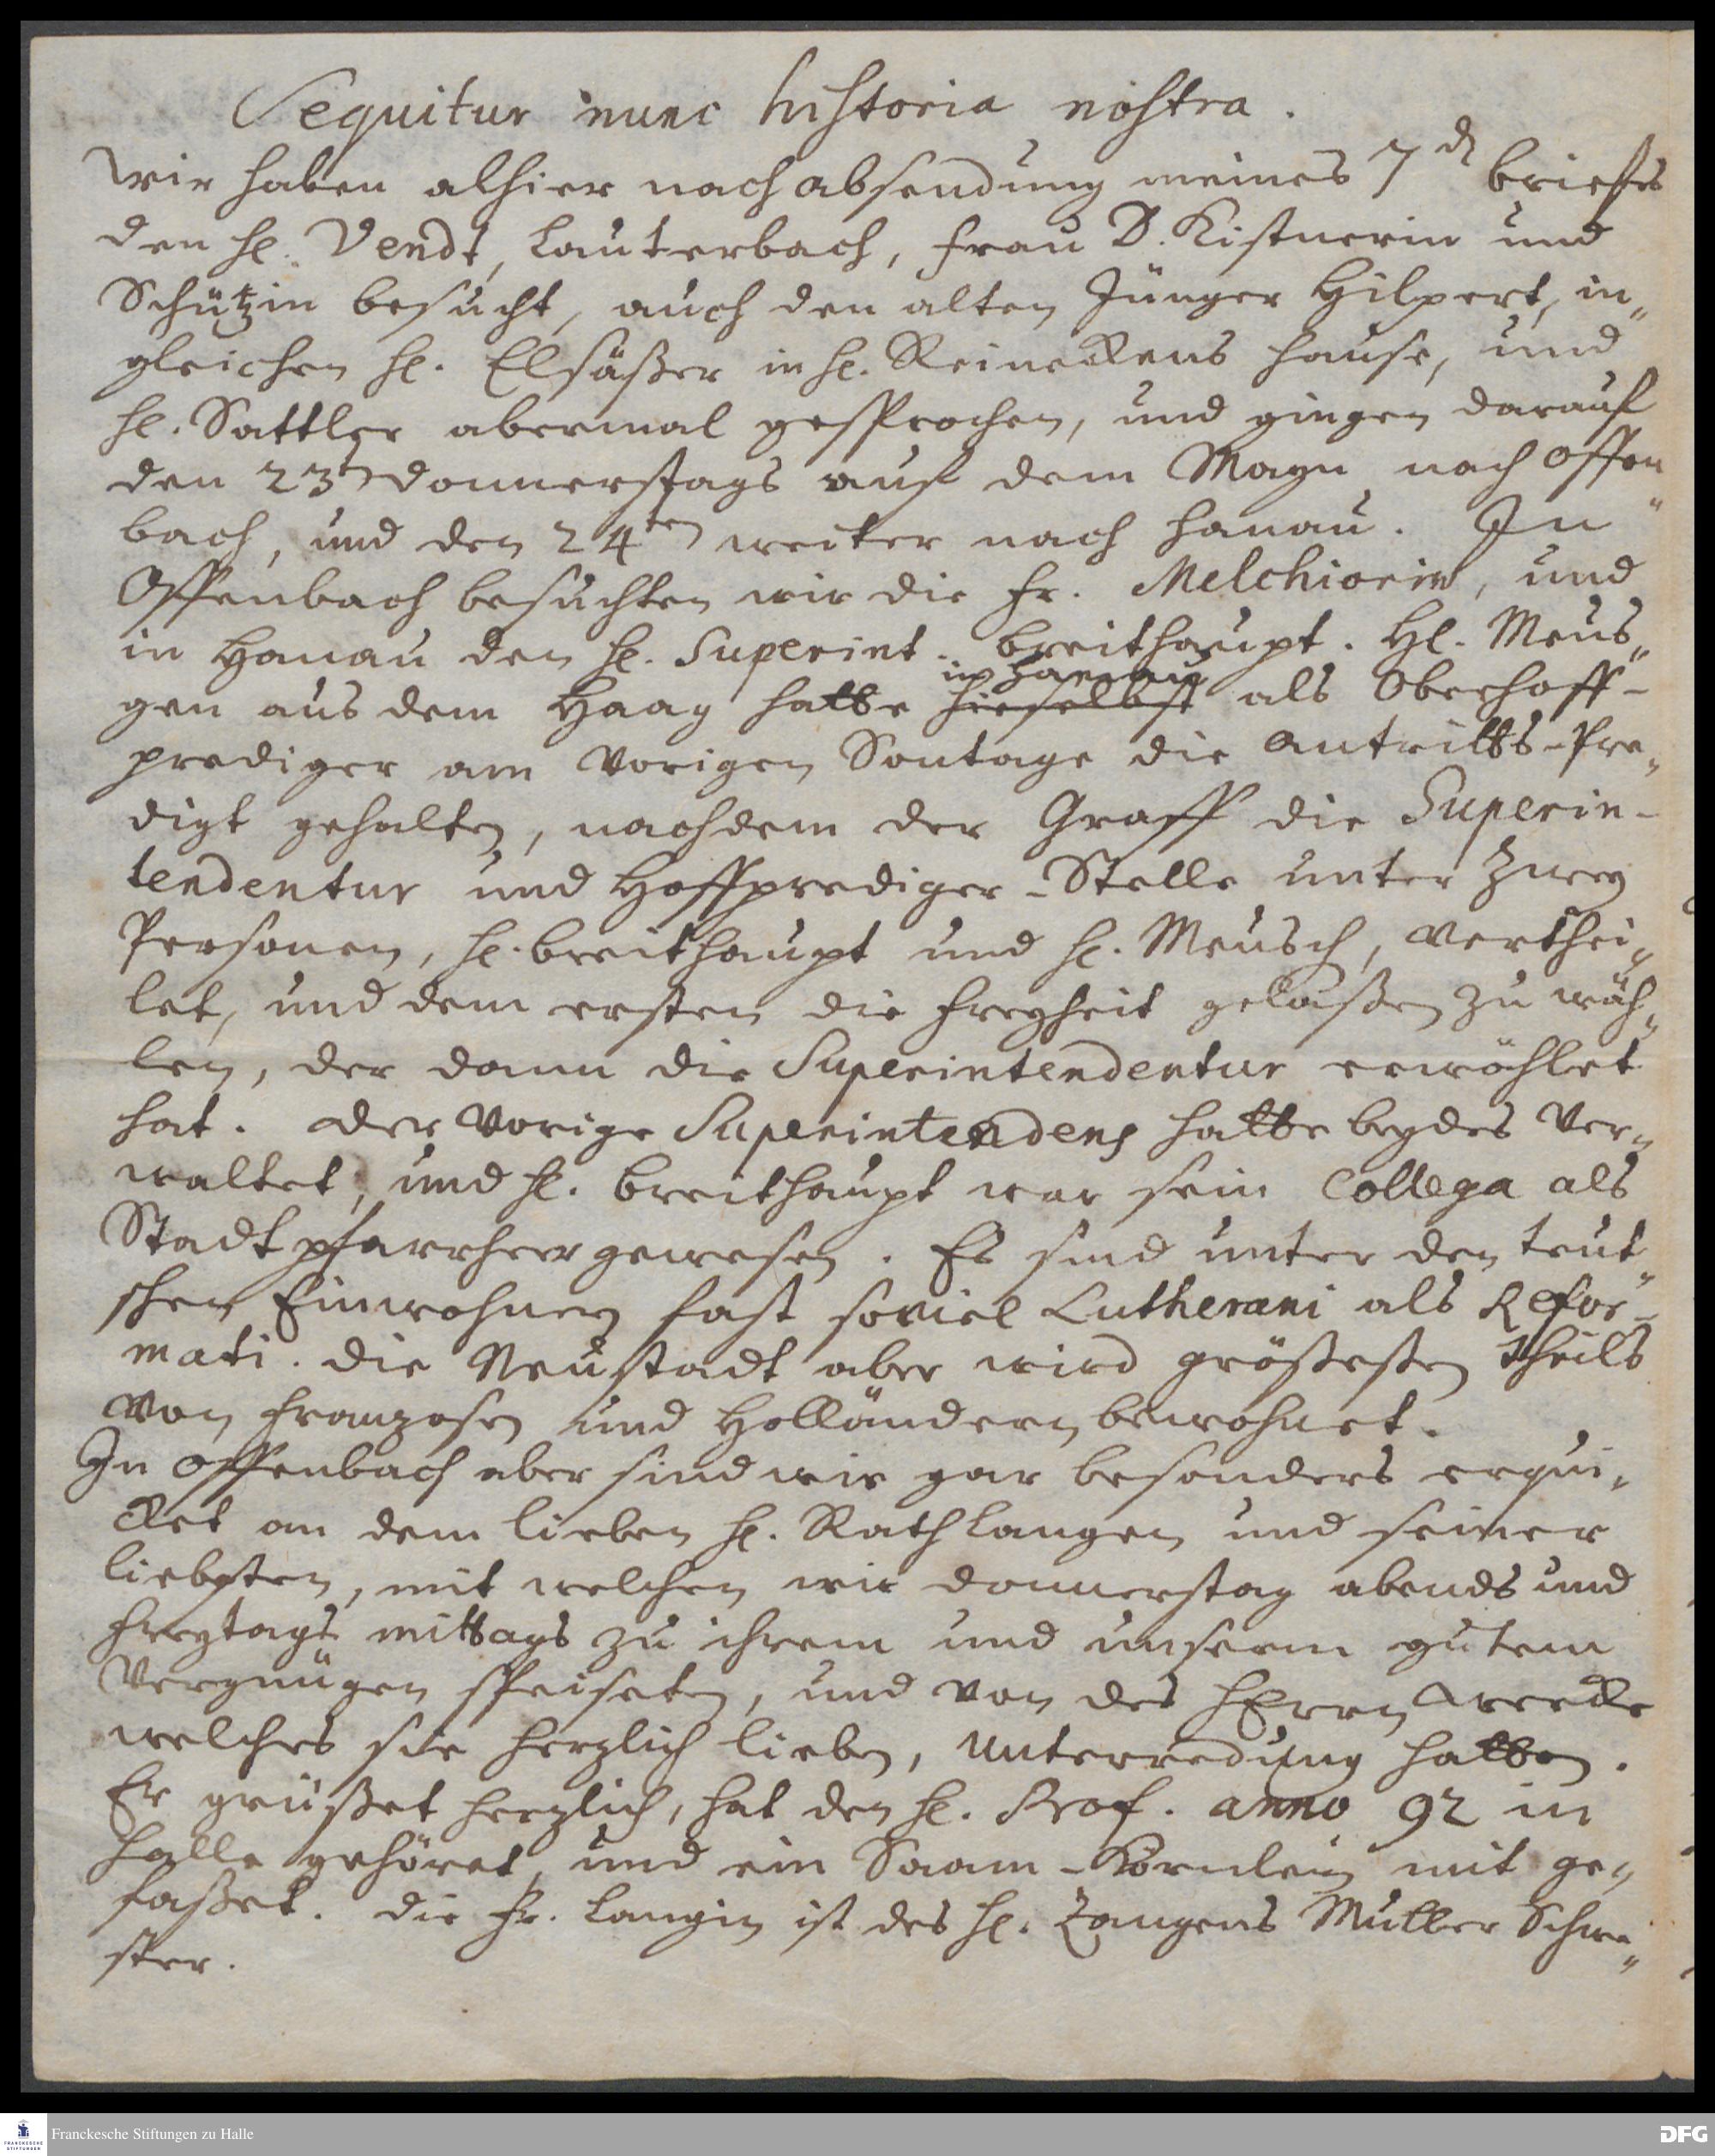 Sequitur nunc historia nostra.
Wir haben alhier nach absendung meines 7d briefes
den H. Vendt, Lauterbach, Frau D. Kistnerin und
Schützin besucht, auch den alten Jünger Hilpert, in„
gleichen H. Elsäßer in H. Reineckens Hause, und
H. Sattler abermal gesprochen, und gingen darauf
den 23t donnerstags auf dem Mayn nach Offen
bach, und den 24ten weiter nach Hanau. In
Offenbach besuchten wir die Fr. Melchiorin, und
in Hanau den H. Superint. Breithaupt. H. Meus„
in Hanau
gen aus dem Haag hatte hieselbst als Oberhoff-
prediger am vorigen Sontage die Antritts-Pre„
digt gehalten, nachdem der Graff die Superin-
tendentur und Hoffprediger-Stelle unter Zwey
Personen, H. Breithaupt und H. Meusch, verthei„
let, und dem ersten die Freyheit gelaßen zu wäh„
len, der dann die Superintendentur erwählet
hat. Der vorige Superintendens hatte beydes ver„
waltet, und H. Breithaupt war sein Collega als
Stadtpfarrherr gewesen. Es sind unter den teut„
schen Einwohnern fast soviel Lutherani als Refor-
mati. Die Neustadt aber wird größesten theils
von Franzosen und Holländern bewohnet.
In Offenbach aber sind wir gar besonders erqui„
cket an dem lieben H. Rath Langen und seiner
liebsten, mit welchen wir donnerstag abends und
Freytags mittags zu ihrem und unserm gutem
Vergnügen speiseten, und von des HErrn Wercke
welches sie herzlich lieben, Unterredung hatten.
Er grüßet herzlich, hat den H. Prof. anno 92 in
Halle gehöret, und ein Saam-Körnlein mit ge„
faßet. Die Fr. Langin ist des H. Zangens Mutter Schwe„
ster.
Franckesche Stiftungen zu Halle
DFG